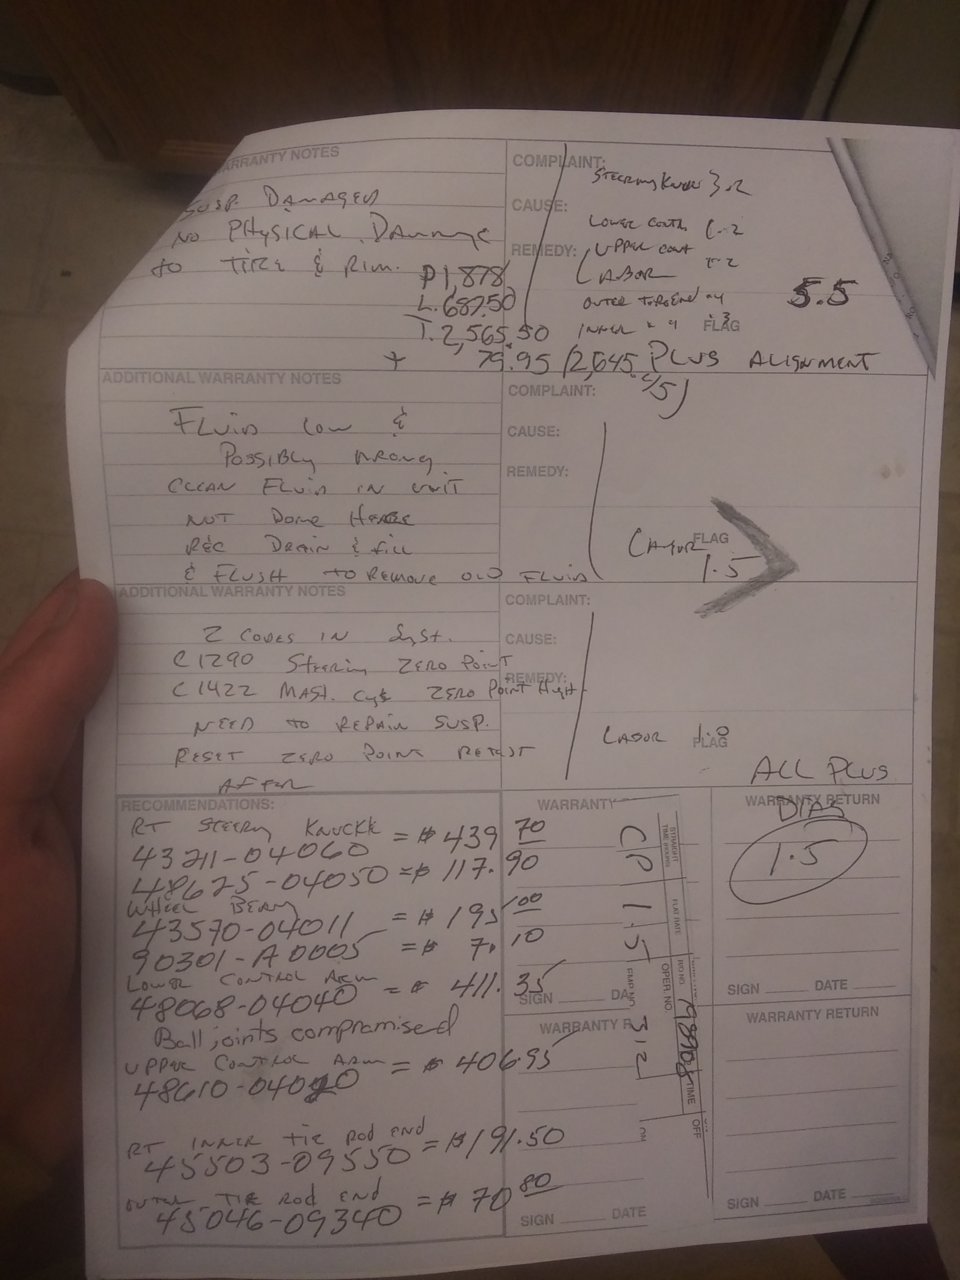 WARRANTY NOTES
SUSP DAMAGED
NO PHYSICAL DAMAGE
to TIRE & RIM.
P 1,878
L. 687.50
T. 2,565.50
+ 79.95 (2,645.45) PLUS ALIGNMENT
COMPLAINT:
CAUSE:
REMEDY:
STEERING KNUCK 3.2
LOWER CONTR
UPPER CONT
LABOR
OUTER
INNER
FLAG
5.5
ADDITIONAL WARRANTY NOTES
FLUID LOW &
POSSIBLY WRONG
CLEAN FLUID IN UNIT
NOT DONE HERE
REC DRAIN & FILL
& FLUSH TO REMOVE OLD FLUID
COMPLAINT:
CAUSE:
REMEDY:
LABOR FLAG
1.5
ADDITIONAL WARRANTY NOTES
2 CODES IN SYST.
C1290 STEERING ZERO POINT
C1422 MAST. CYL ZERO POINT HIGH
NEED TO REPAIR SUSP.
RESET ZERO POINT RETEST
AFTER
COMPLAINT:
CAUSE:
REMEDY:
LABOR 1.0
FLAG
ALL PLUS
DIAG
1.5
RECOMMENDATIONS:
RT STEERING KNUCKLE = $ 439 70
43211-04060
48625-04050 = $ 117.90
WHEEL BEARING
43570-04011 = $ 195 00
90301-A0005 = $ 7.10
LOWER CONTROL ARM
48068-04040 = $ 411.35
Ball joints compromised
UPPER CONTROL ARM = $ 406.95
48610-04020
RT INNER TIE ROD END = $ 191.50
45503-09550
OUTER TIE ROD END = $ 70 80
45046-09340
WARRANTY
SIGN DA
WARRANTY R
SIGN DATE
STRAIGHT
FLAT RATE
CP 1.5
RO NO.
OPER. NO.
EMP. NO.
312
TIME
OFF
ON
WARRANTY RETURN
SIGN DATE
WARRANTY RETURN
SIGN DATE